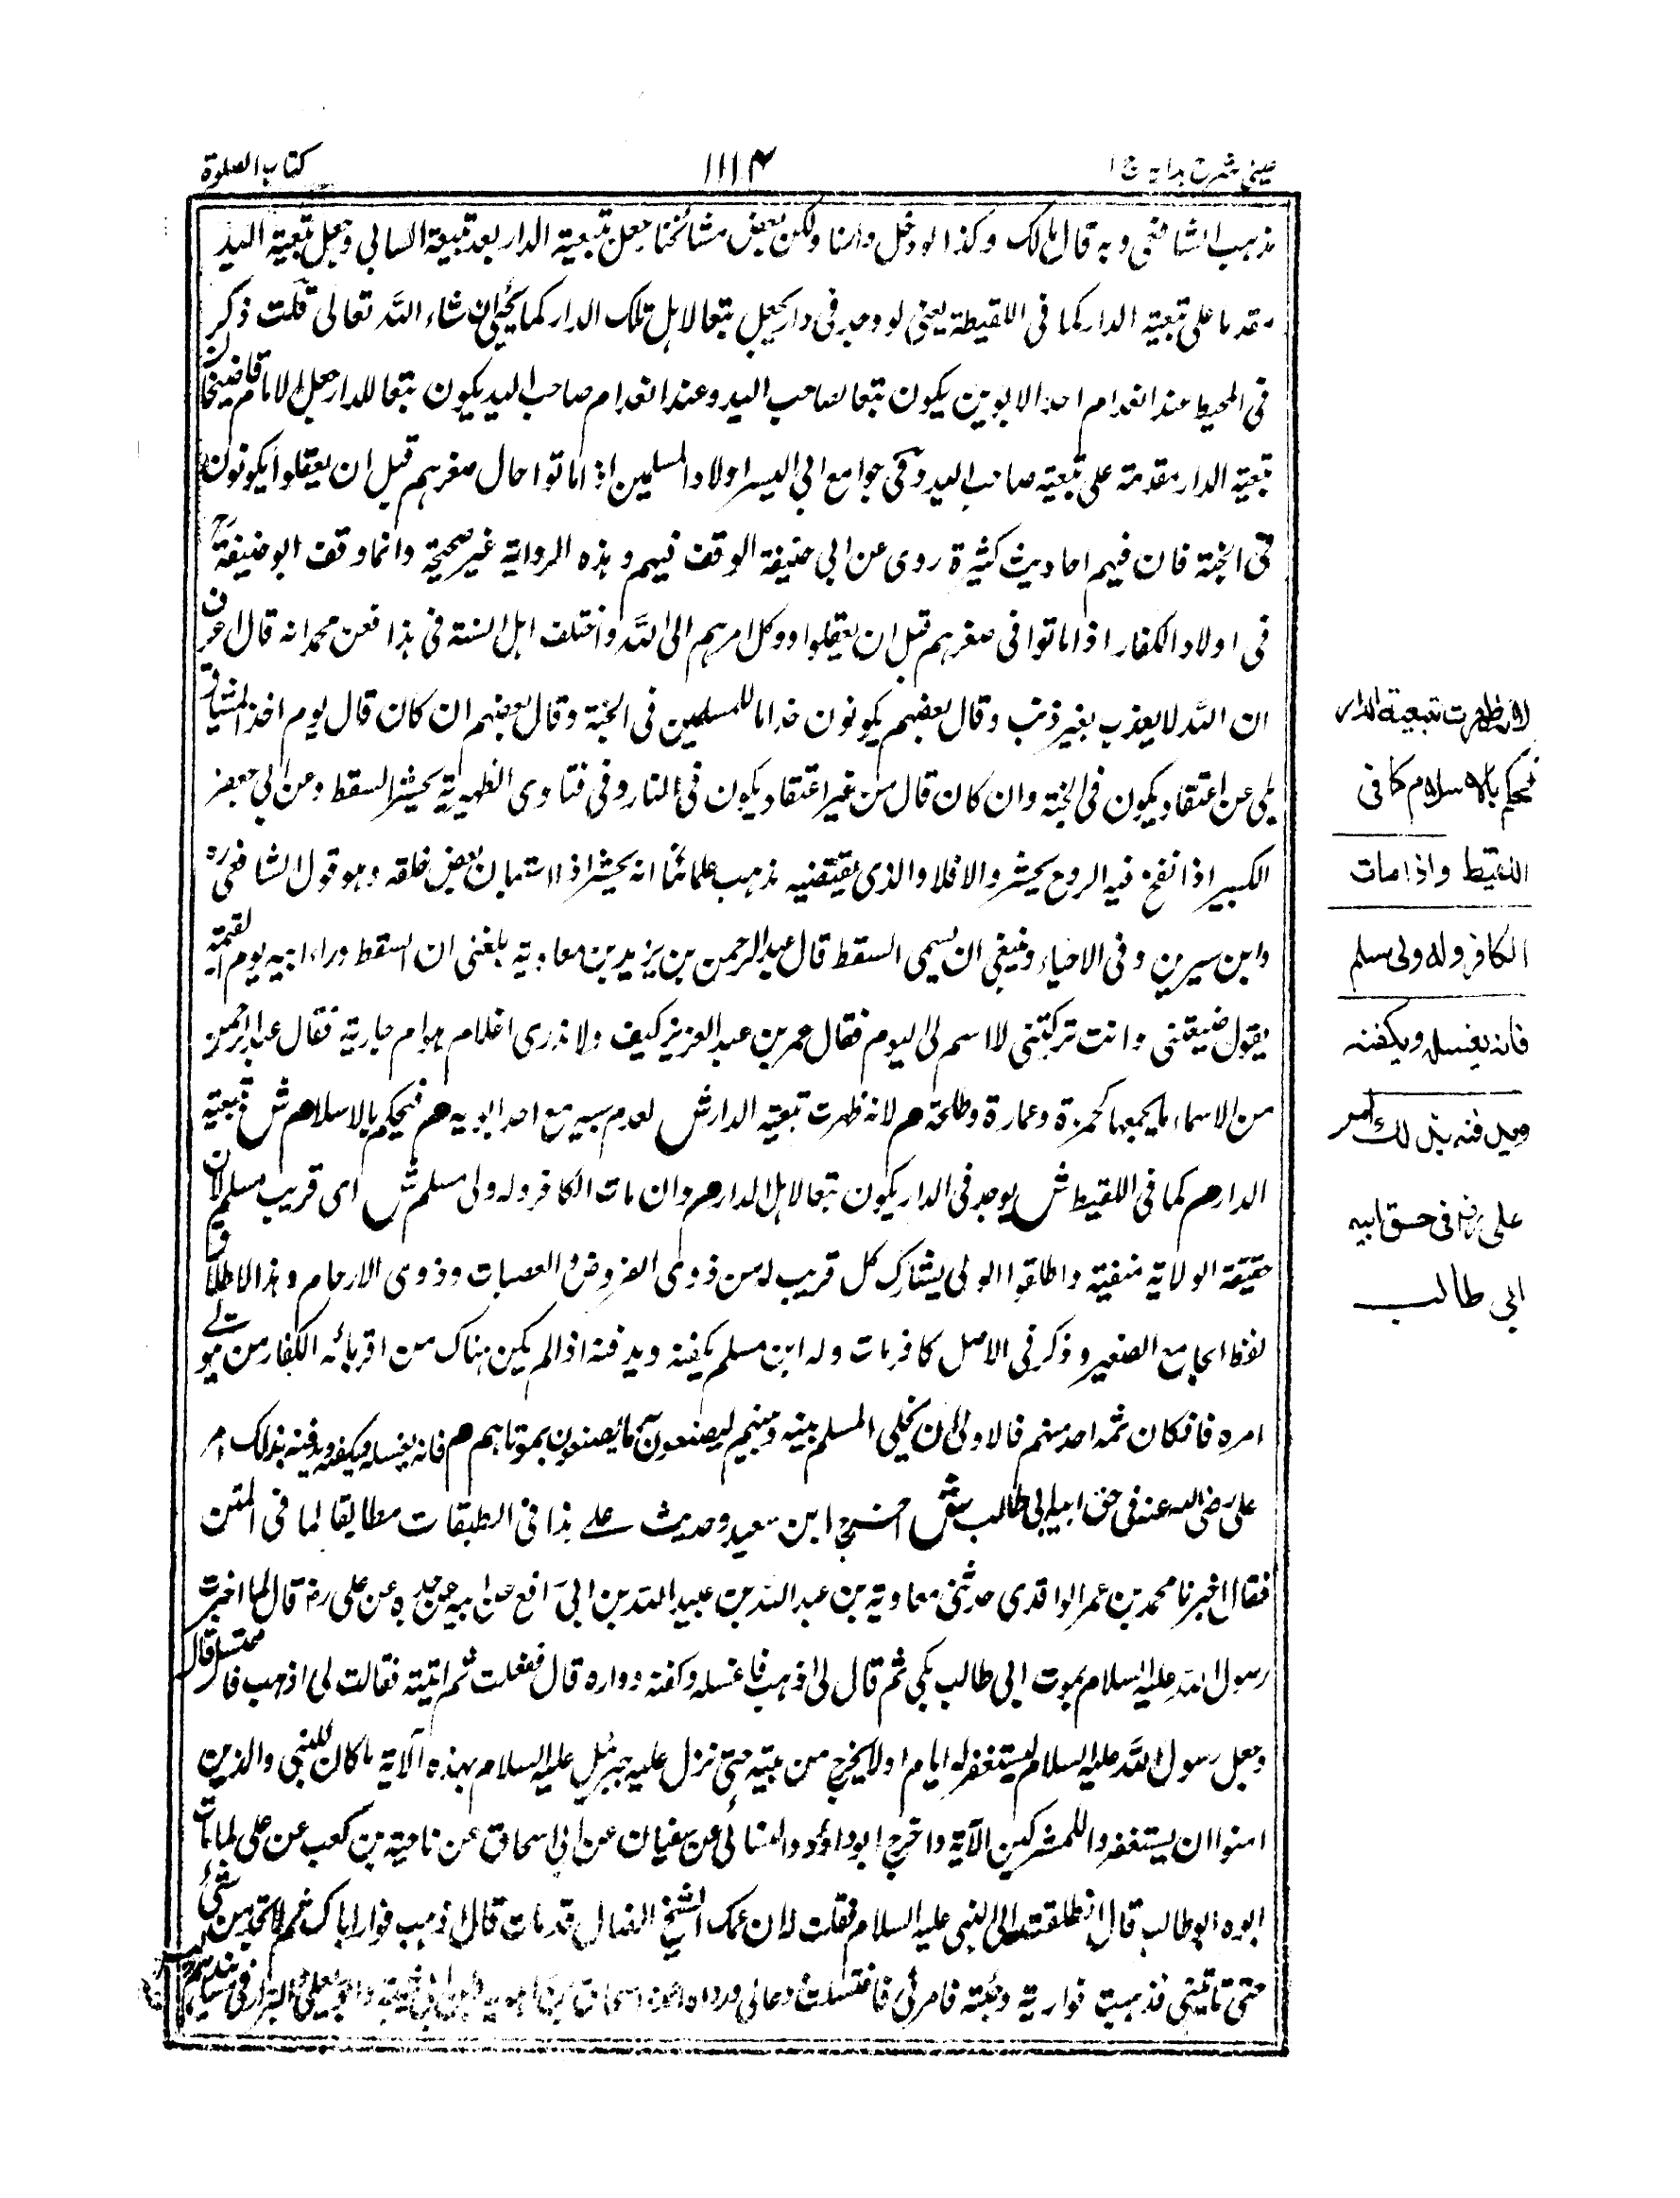 عینی شرح ہدایہ ج ۱
۱۱۱۴
کتاب الصلوة
مذہب الشافعی وبہ قال مالک وکذا لو دخل دارنا ولکن بعض مشائخنا جعل تبعیة الدار بعد تبعیة السابی وجعل تبعیة الید
مقدما علی تبعیة الدار کما فی اللقیطة یعنی لو وجد فی دار یجعل تبعا لاہل تلک الدار کما یجئ ان شاء اللہ تعالی قلت ذکر
فی المحیط عند انعدام احد الابوین یکون تبعا لصاحب الید وعند انعدام صاحب الید یکون تبعا للدار جعل الامام قاضیخان
تبعیة الدار مقدمة علی تبعیة صاحب الید وفی جوامع ابی الیسر اولاد المسلمین اذا ماتوا حال صغرہم قبل ان یعقلوا یکونون
فی الجنة فان فیہم احادیث کثیرة روی عن ابی حنیفة الوقف فیہم وہذہ الروایة غیر صحیحة وانما وقف ابو حنیفة
فی اولاد الکفار اذا ماتوا فی صغرہم قبل ان یعقلوا ووکل امرہم الی اللہ واختلف اہل السنة فی ہذا فعن محمد انہ قال اعرف
ان اللہ لا یعذب بغیر ذنب وقال بعضہم یکونون خداما للمسلمین فی الجنة وقال بعضہم ان کان قال یوم اخذ المیثاق
بلی عن اعتقاد یکون فی الجنة وان کان قال من غیر اعتقاد یکون فی النار وفی فتاوی الظہیریة یحشر السقط وعن ابی جعفر
الکبیر اذا نفخ فیہ الروح یحشر والا فلا والذی یقتضیہ مذہب علمائنا انہ یحشر اذا استبان بعض خلقہ وہو قول الشافعی رہ
وابن سیرین وفی الاحیاء وینبغی ان یسمی السقط قال عبد الرحمن بن یزید بن معاویة بلغنی ان السقط وراء ابیہ یوم القیمة
یقول ضیعتنی وانت ترکتنی لا اسم لی الیوم فقال عمر بن عبد العزیز کیف ولا ندری اغلام ہو ام جاریة فقال عبد الرحمن
من الاسماء ما یجمعہا کحمزة وعمارة وطلحة م لانہ ظہرت تبعیة الدار ش لعدم سبیہ مع احد ابویہ م فیحکم بالاسلام ش تبعیة
الدار م کما فی اللقیط ش یوجد فی الدار یکون تبعا لاہل الدار م وان مات الکافر ولہ ولی مسلم ش ای قریب مسلم لان
حقیقة الولایة منفیة واطلقوا الولی یشارک کل قریب لہ من ذوی الفروض والعصبات وذوی الارحام وہذا الاطلاق
لفظ الجامع الصغیر وذکر فی الاصل کافر مات ولہ ابن مسلم یکفنہ ویدفنہ اذا لم یکن ہناک من اقربائہ الکفار من یتولی
امرہ فان کان ثمہ احد منہم فالاولی ان یخلی المسلم بینہ وبینہم لیصنعون بہ ما یصنعون بموتاہم م فانہ یغسلہ ویکفنہ ویدفنہ بذلک امر
علی رضی اللہ عنہ فی حق ابیہ ابی طالب ش اخرج ابن سعد وحدیث علی ہذا فی الطبقات مطابقا لما فی المتن
فقال اخبرنا محمد بن عمر الواقدی حدثنی معاویة بن عبد اللہ بن عبید اللہ بن ابی رافع عن ابیہ عن جدہ عن علی رض قال لما اخبرت
رسول اللہ علیہ السلام بموت ابی طالب بکی ثم قال لی اذہب فاغسلہ وکفنہ ووارہ قال ففعلت ثم اتیتہ فقالت لی اذہب فاغتسل قال
وجعل رسول اللہ علیہ السلام یستغفر لہ ایام اولا یخرج من بیتہ حتی نزل علیہ جبرئیل علیہ السلام بہذہ الآیة ما کان للنبی والذین
امنوا ان یستغفروا للمشرکین الآیة واخرج ابو داؤد والنسائی عن سفیان عن ابی اسحاق عن ناجیة بن کعب عن علی لما مات
ابوہ ابو طالب قال انطلقت الی النبی علیہ السلام فقلت لہ ان عمک الشیخ الضال قد مات قال اذہب فوار اباک ثم لا تحدثن شئ
حتی تاتینی فذہبت فواریتہ وجئتہ فامرنی فاغتسلت ودعا لی ورواہ احمد واسحاق بن راہویہ وابن ابی شیبة وابو یعلی والبزار فی مسانیدہم
لانہ ظہرت تبعیة الدار
فیحکم بالاسلام کما فی
اللقیط واذا مات
الکافر ولہ ولی مسلم
فانہ یغسلہ ویکفنہ
ویدفنہ بذلک امر
علی رض فی حق ابیہ
ابی طالب